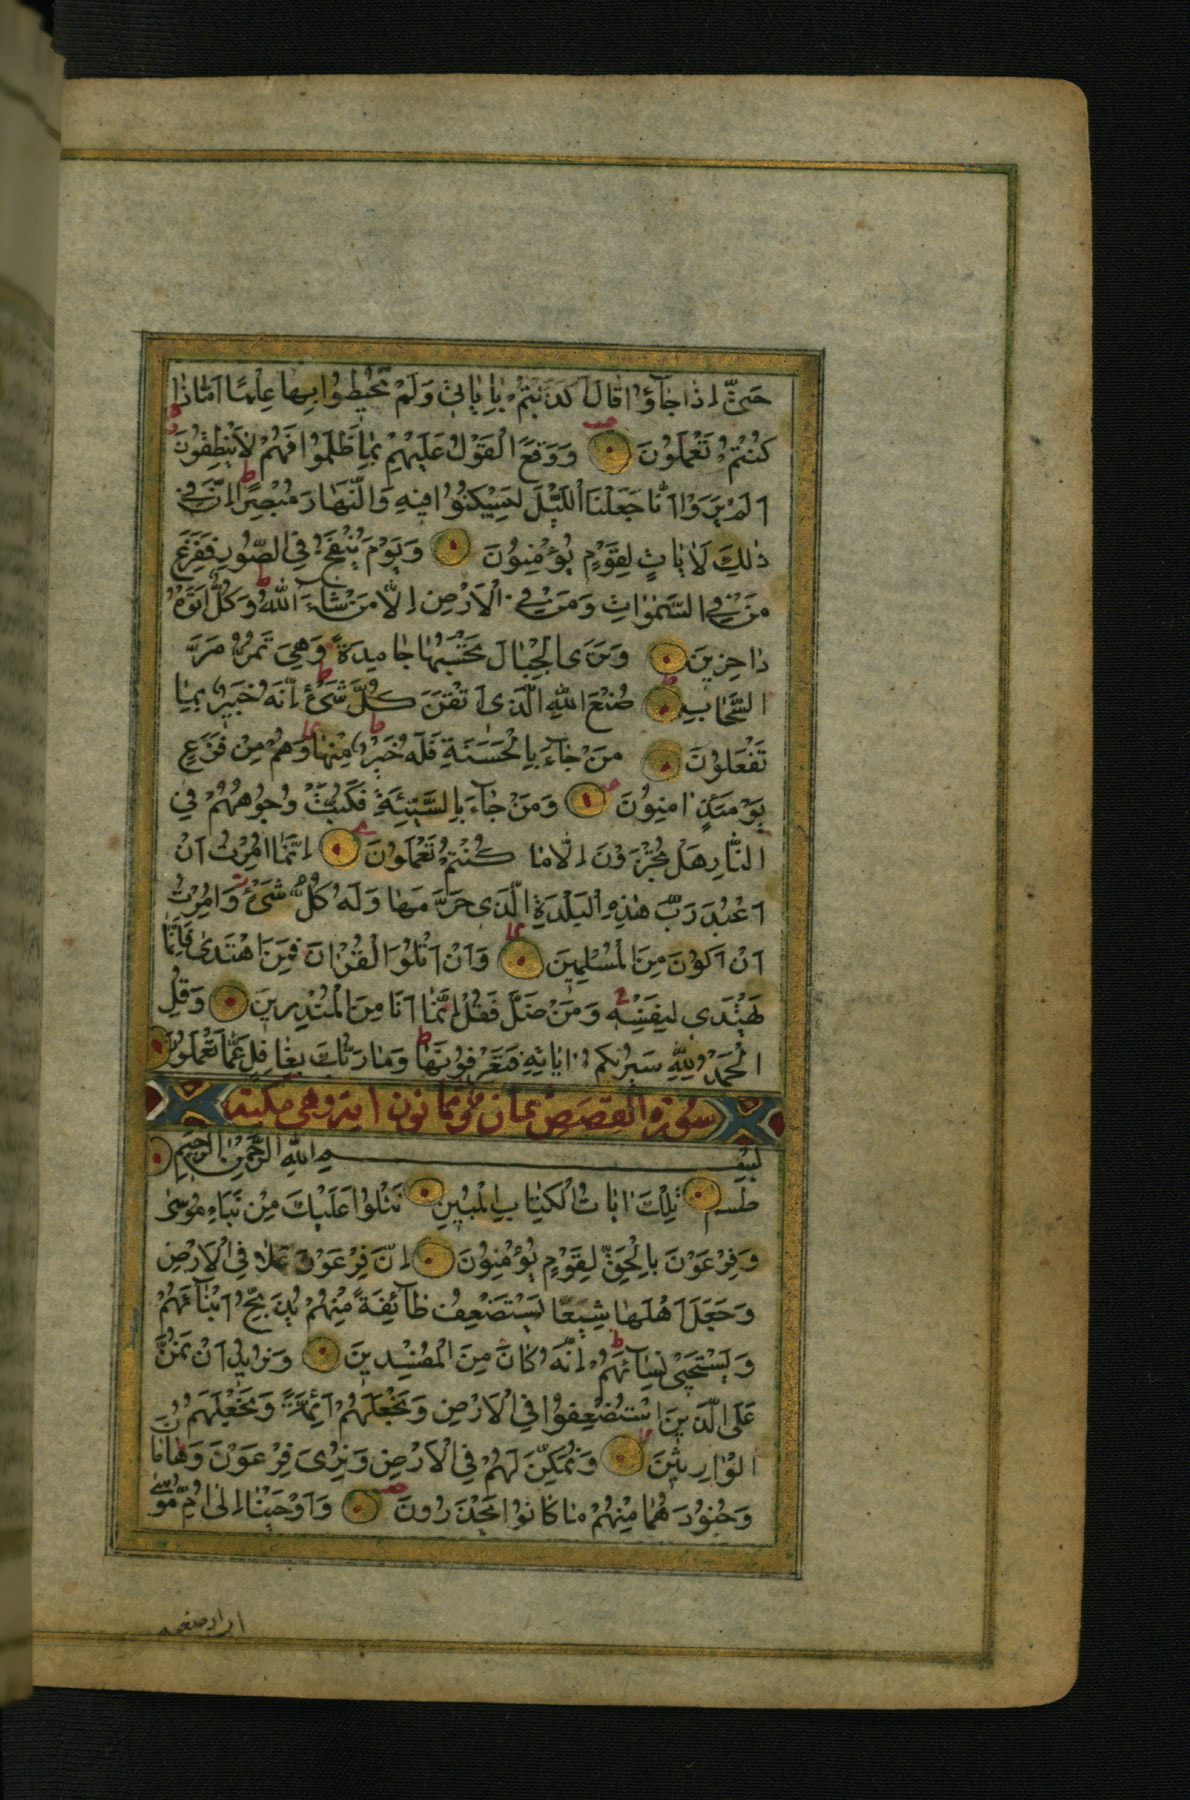 حَتّىٰ اِذَا جَآؤُا قَالَ كَذَّبْتُمْ بِاٰيَاتِي وَلَمْ تُحِيطُوا بِهَا عِلْمًا اَمَّاذَا
كُنْتُمْ تَعْمَلُونَ وَوَقَعَ الْقَوْلُ عَلَيْهِمْ بِمَا ظَلَمُوا فَهُمْ لَا يَنْطِقُونَ
اَلَمْ يَرَوْا اَنَّا جَعَلْنَا اللَّيْلَ لِيَسْكُنُوا فِيهِ وَالنَّهَارَ مُبْصِرًا اِنَّ فِي
ذٰلِكَ لَاٰيَاتٍ لِقَوْمٍ يُؤْمِنُونَ وَيَوْمَ يُنْفَخُ فِي الصُّورِ فَفَزِعَ
مَنْ فِي السَّمٰوَاتِ وَمَنْ فِي الْاَرْضِ اِلَّا مَنْ شَآءَ اللّٰهُ وَكُلٌّ اَتَوْهُ
دَاخِرِينَ وَتَرَى الْجِبَالَ تَحْسَبُهَا جَامِدَةً وَهِيَ تَمُرُّ مَرَّ
السَّحَابِ صُنْعَ اللّٰهِ الَّذِى اَتْقَنَ كُلَّ شَىْءٍ اِنَّهُ خَبِيرٌ بِمَا
تَفْعَلُونَ مَنْ جَآءَ بِالْحَسَنَةِ فَلَهُ خَيْرٌ مِنْهَا وَهُمْ مِنْ فَزَعٍ
يَوْمَئِذٍ اٰمِنُونَ وَمَنْ جَآءَ بِالسَّيِّئَةِ فَكُبَّتْ وُجُوهُهُمْ فِي
النَّارِ هَلْ تُجْزَوْنَ اِلَّا مَا كُنْتُمْ تَعْمَلُونَ اِنَّمَا اُمِرْتُ اَنْ
اَعْبُدَ رَبَّ هٰذِهِ الْبَلْدَةِ الَّذِى حَرَّمَهَا وَلَهُ كُلُّ شَىْءٍ وَاُمِرْتُ
اَنْ اَكُونَ مِنَ الْمُسْلِمِينَ وَاَنْ اَتْلُوَ الْقُرْاٰنَ فَمَنِ اهْتَدٰى فَاِنَّمَا
يَهْتَدِى لِنَفْسِهِ وَمَنْ ضَلَّ فَقُلْ اِنَّمَا اَنَا مِنَ الْمُنْذِرِينَ وَقُلِ
الْحَمْدُ لِلّٰهِ سَيُرِيكُمْ اٰيَاتِهِ فَتَعْرِفُونَهَا وَمَا رَبُّكَ بِغَافِلٍ عَمَّا تَعْمَلُونَ
سورة القصص ثمان وثمانون اية وهى مكية
بسم الله الرحمن الرحيم
طٰسم تِلْكَ اٰيَاتُ الْكِتَابِ الْمُبِينِ نَتْلُوا عَلَيْكَ مِنْ نَبَاءِ مُوسٰى
وَفِرْعَوْنَ بِالْحَقِّ لِقَوْمٍ يُؤْمِنُونَ اِنَّ فِرْعَوْنَ عَلَا فِي الْاَرْضِ
وَجَعَلَ اَهْلَهَا شِيَعًا يَسْتَضْعِفُ طَآئِفَةً مِنْهُمْ يُذَبِّحُ اَبْنَآءَهُمْ
وَيَسْتَحْيِى نِسَآءَهُمْ اِنَّهُ كَانَ مِنَ الْمُفْسِدِينَ وَنُرِيدُ اَنْ نَمُنَّ
عَلَى الَّذِينَ اسْتُضْعِفُوا فِي الْاَرْضِ وَنَجْعَلَهُمْ اَئِمَّةً وَنَجْعَلَهُمُ
الْوَارِثِينَ وَنُمَكِّنَ لَهُمْ فِي الْاَرْضِ وَنُرِىَ فِرْعَوْنَ وَهَامَانَ
وَجُنُودَهُمَا مِنْهُمْ مَا كَانُوا يَحْذَرُونَ وَاَوْحَيْنَا اِلٰى اُمِّ مُوسٰى
ان ارضعيه